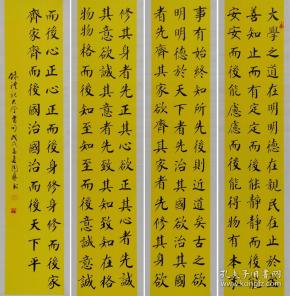 大學之道在明明德在止於至
善知止而有定而後能靜靜而後能
安安而後能慮慮而後能得物有本
事有終始知所先後則近道矣古之欲
明明德於天下者先治其國欲治其國
者先齊其家欲齊其家者先欲
修其身者先正其心欲正其心者先誠
其意欲誠其意者先致其知致知在格
物物格而後知至知至而後意誠意誠
而後心正心正而後身修身修而後家
齊家齊而後國治國治而後天下平
錄禮記大學句
孔夫子旧书网